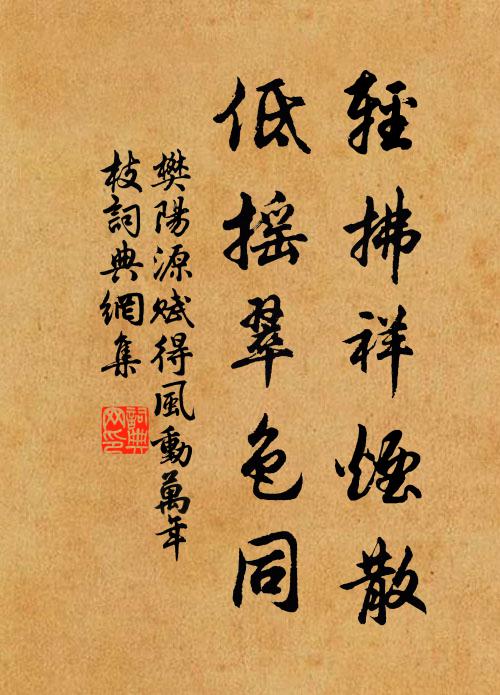 輕拂祥煙散
低搖翠色同
樊陽源賦得風動萬年
枝詞典網集
詞典網印